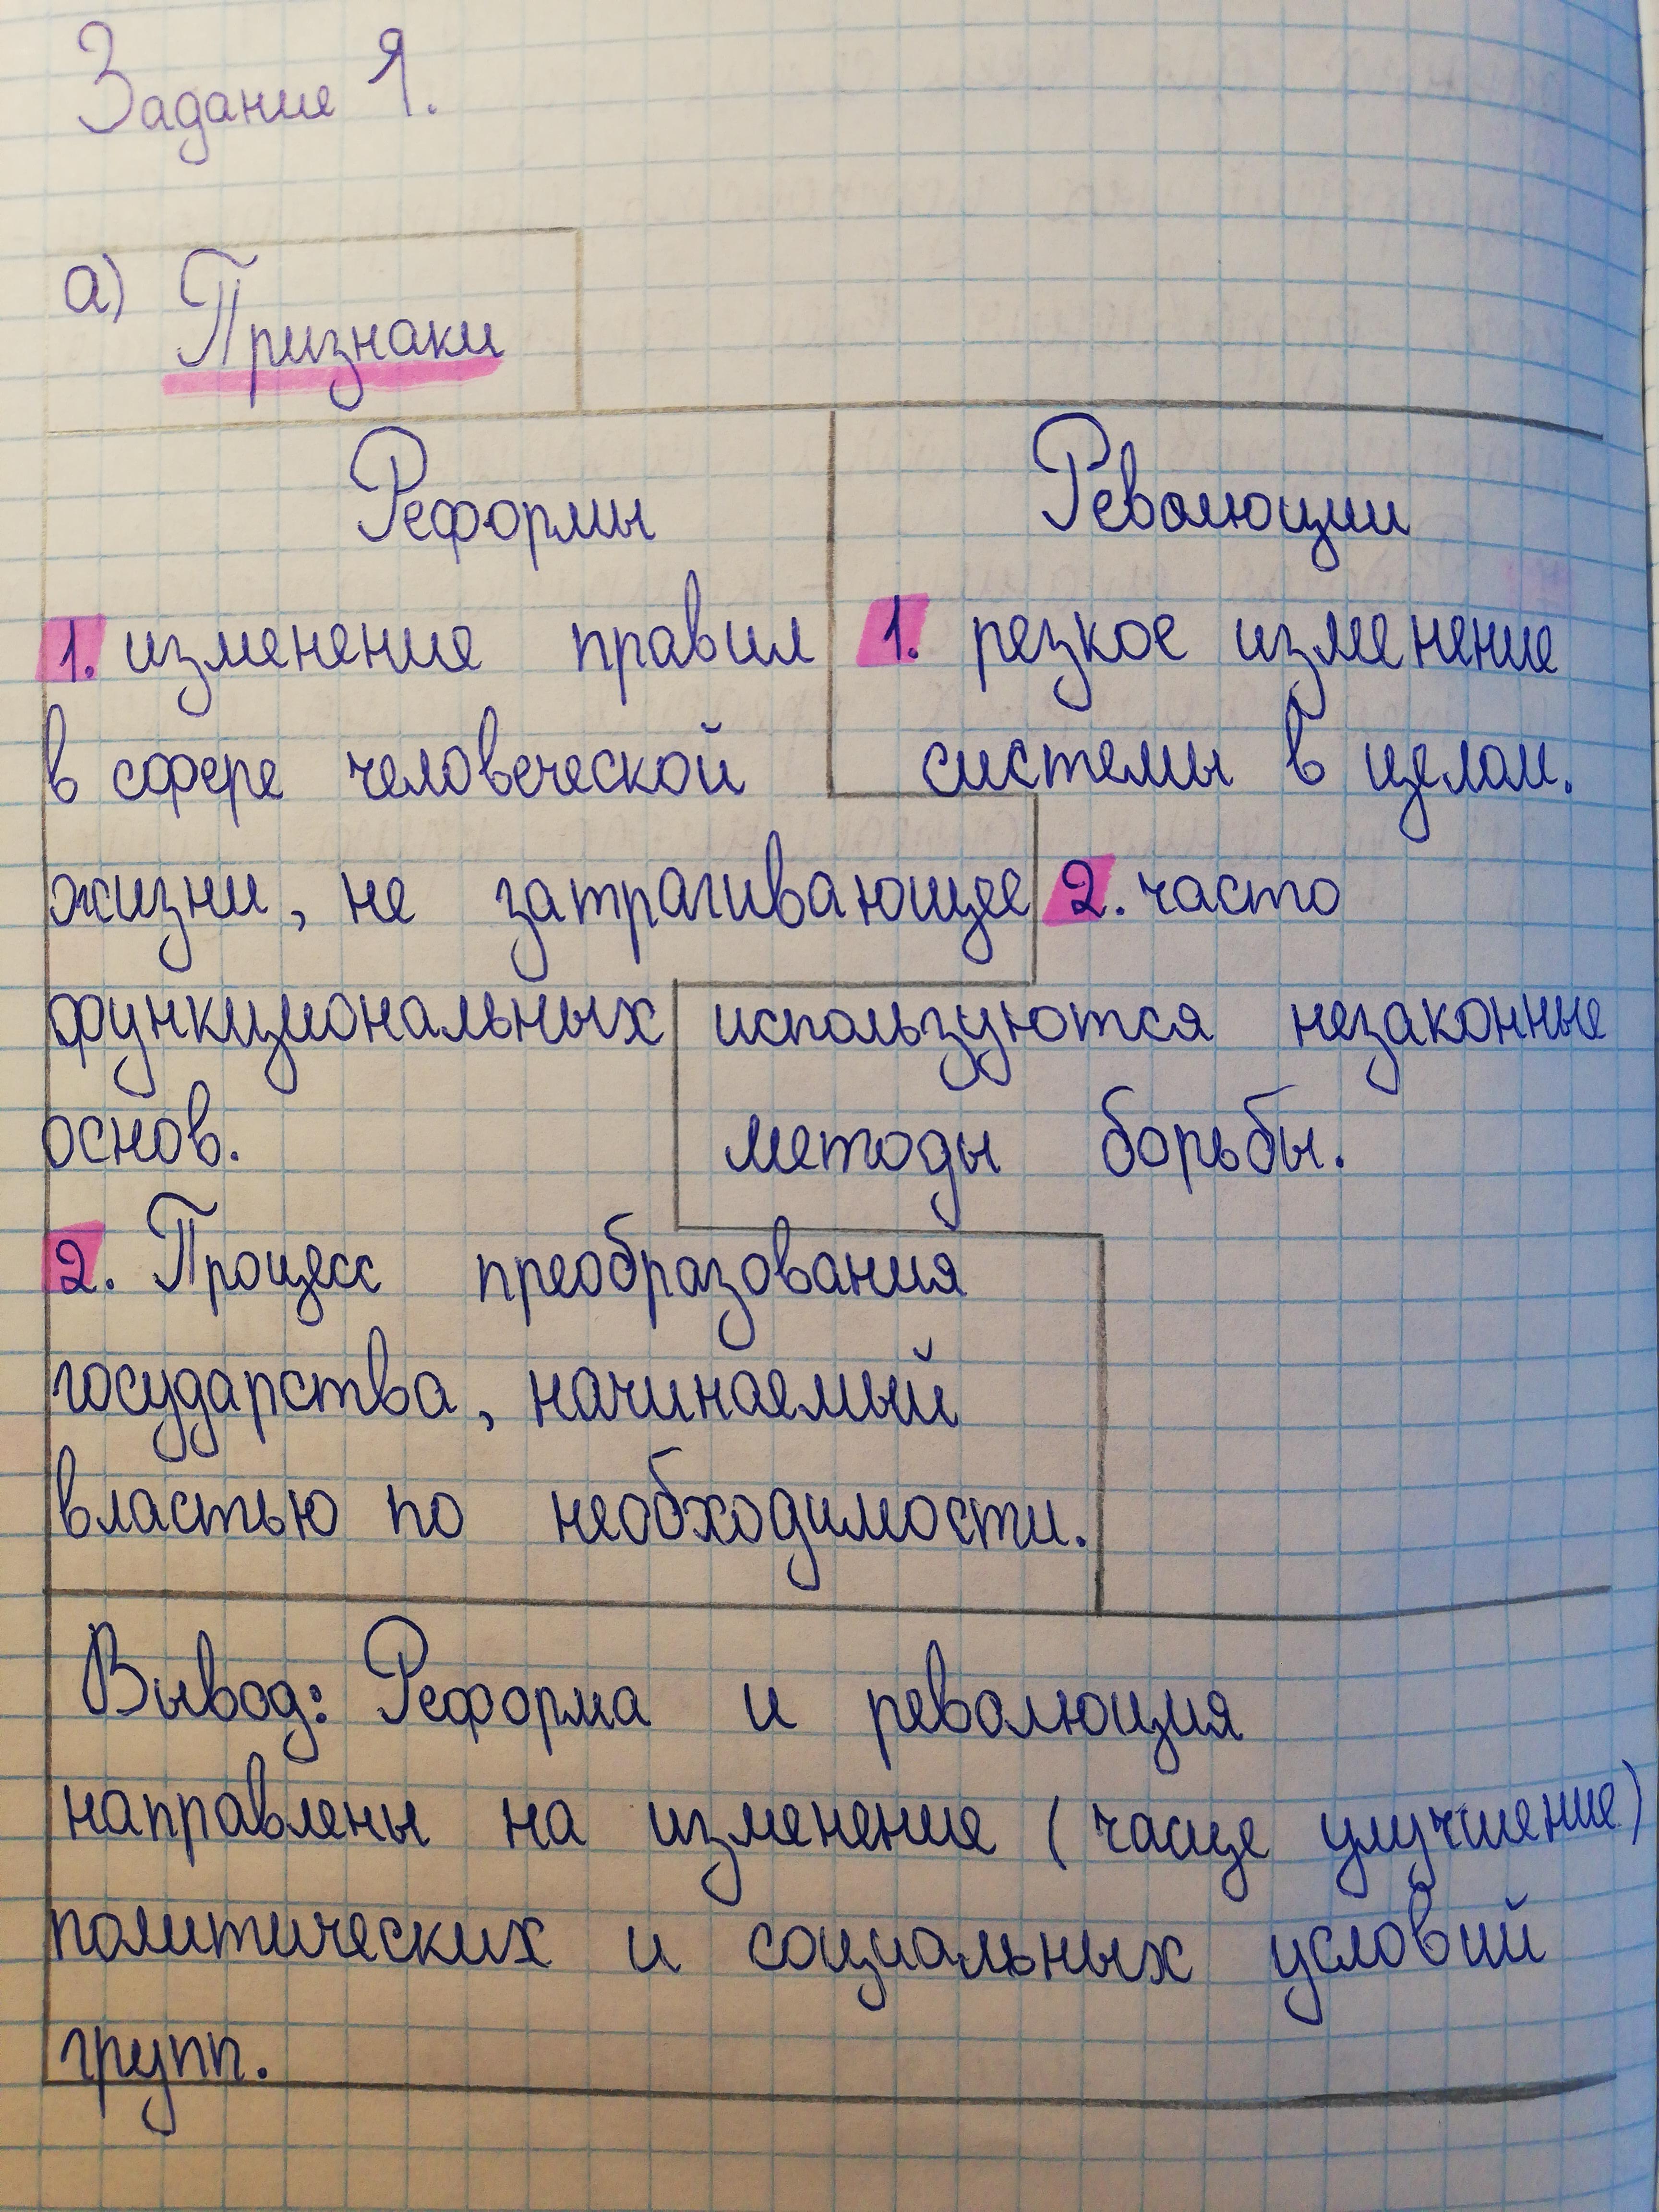 Задание 1.
а) Признаки
Реформы
1. изменение правил
в сфере человеческой
жизни, не затрагивающее
функциональных
основ.
2. Процесс преобразования
государства, начинаемый
властью по необходимости.
Революции
1. резкое изменение
системы в целом.
2. часто
используются незаконные
методы борьбы.
Вывод: Реформа и революция
направлены на изменение (чаще улучшение)
политических и социальных условий
групп.